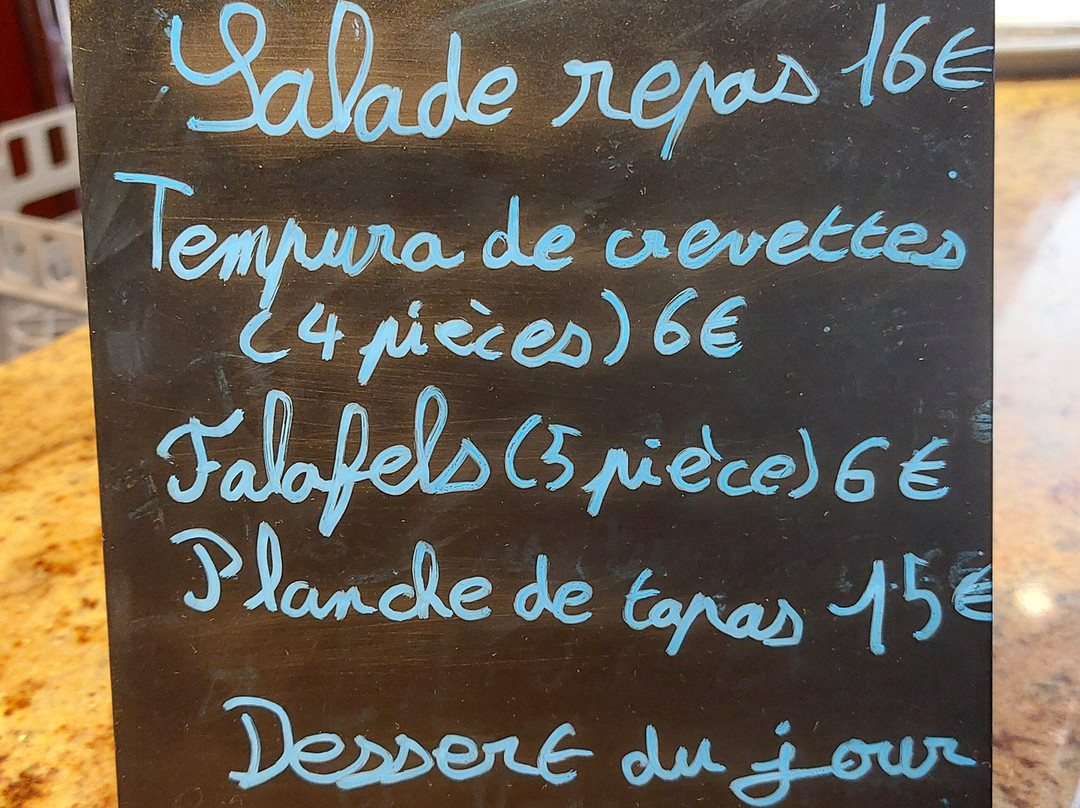 Salade repas 16€
Tempura de crevettes
(4 pièces) 6€
Falafels (5 pièce) 6€
Planche de tapas 15€
Dessert du jour